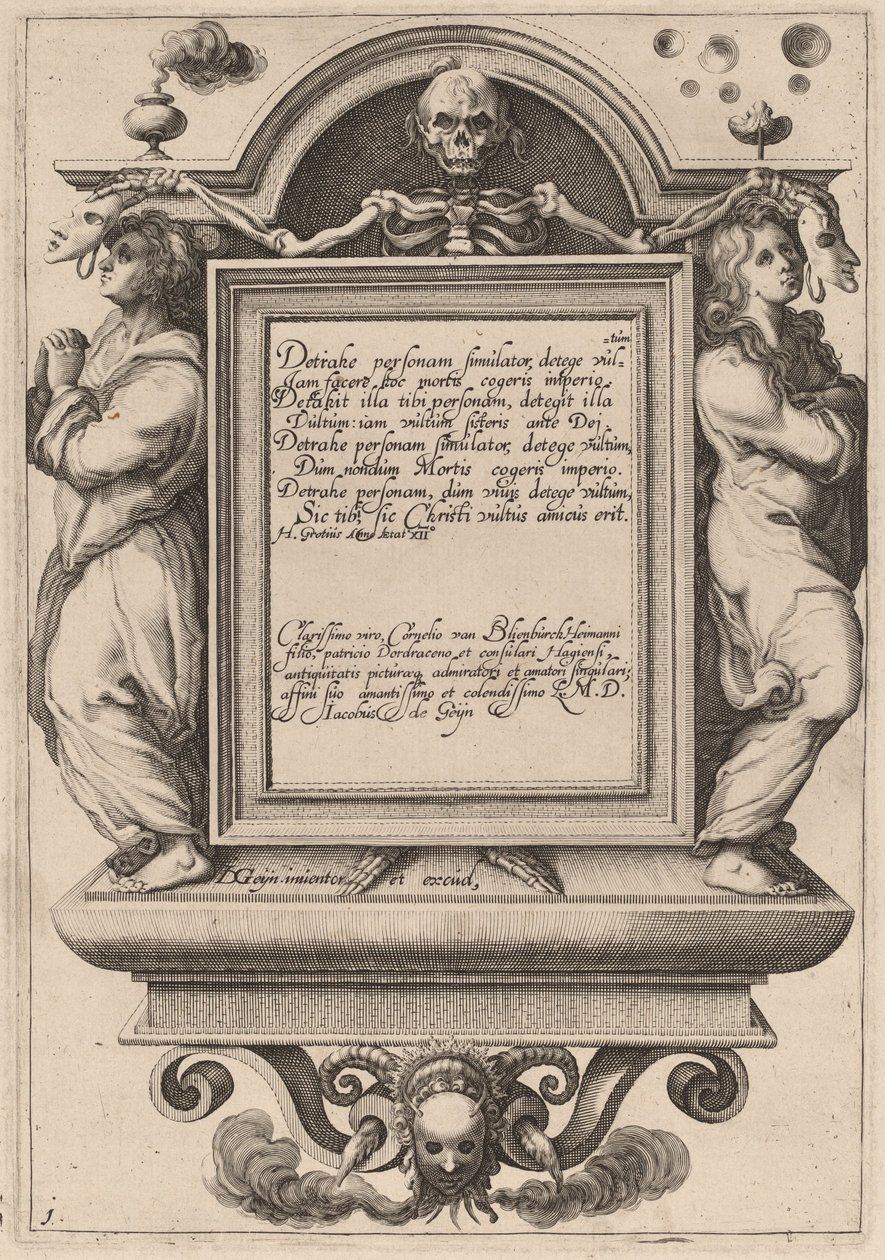 =tum
Detrahe personam simulator, detege vul=
Iam facere hoc mortis cogeris imperio.
Detrahit illa tibi personam, detegit illa
Vultum: iam vultum sisteris ante Dei.
Detrahe personam simulator, detege vultum,
Dum nondum Mortis cogeris imperio.
Detrahe personam, dum vivis detege vultum,
Sic tibi, sic Christi vultus amicus erit.
H. Grotius Anno Ætat XII°
Clarissimo viro, Cornelio van Blienburch Heimanni
filio, patricio Dordraceno et consulari Hagiensi,
antiquitatis picturæq, admiratori et amatori singulari;
affini suo amantissimo et colendissimo L. M. D.
Iacobus de Geijn
DGeijn inventor et excud,
1.